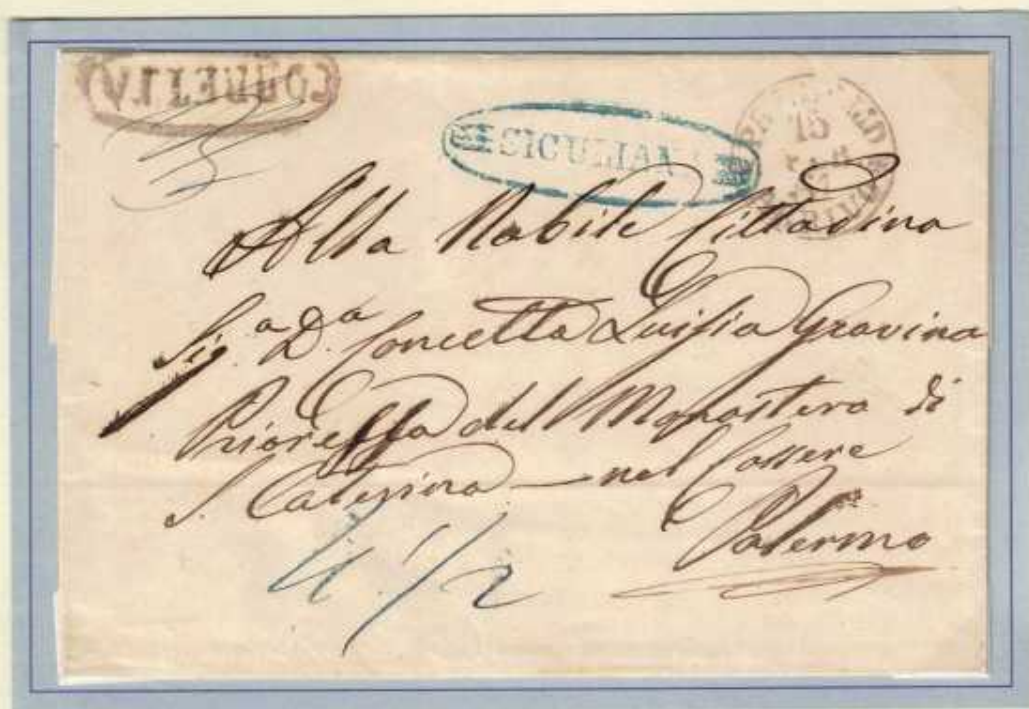 CORRETTA
SICULIANA
15
Alla Nobile Cittadina
Sig.ª D.ª Concetta Luisia Gravina
Prioressa del Monastero di
S. Caterina — nel Cassere
Palermo
4. 1/2